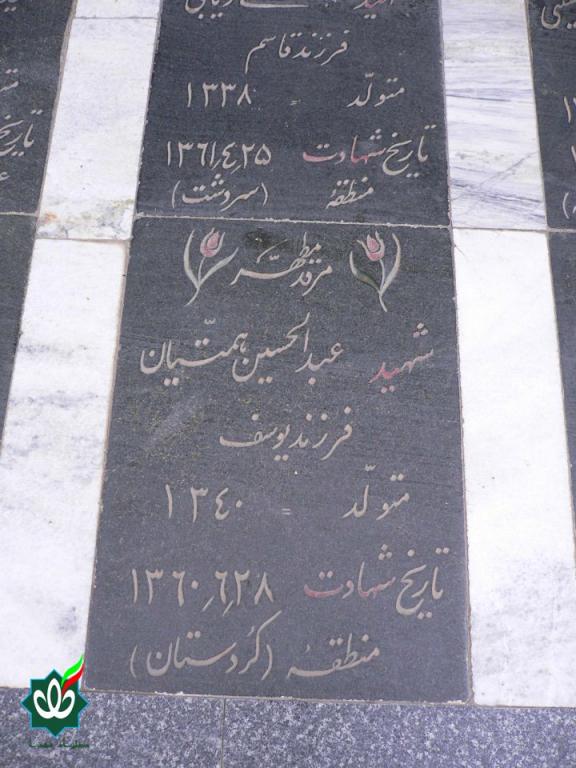 شهید
فرزند قاسم
متولد = ۱۳۳۸
تاریخ شهادت ۱۳۶۱٫۴٫۲۵
منطقهٔ (سردشت)
مرقد مطهّر
شهید عبدالحسین همتیان
فرزند یوسف
متولّد = ۱۳۴۰
تاریخ شهادت ۱۳۶۰٫۶٫۲۸
منطقهٔ (کُردستان)